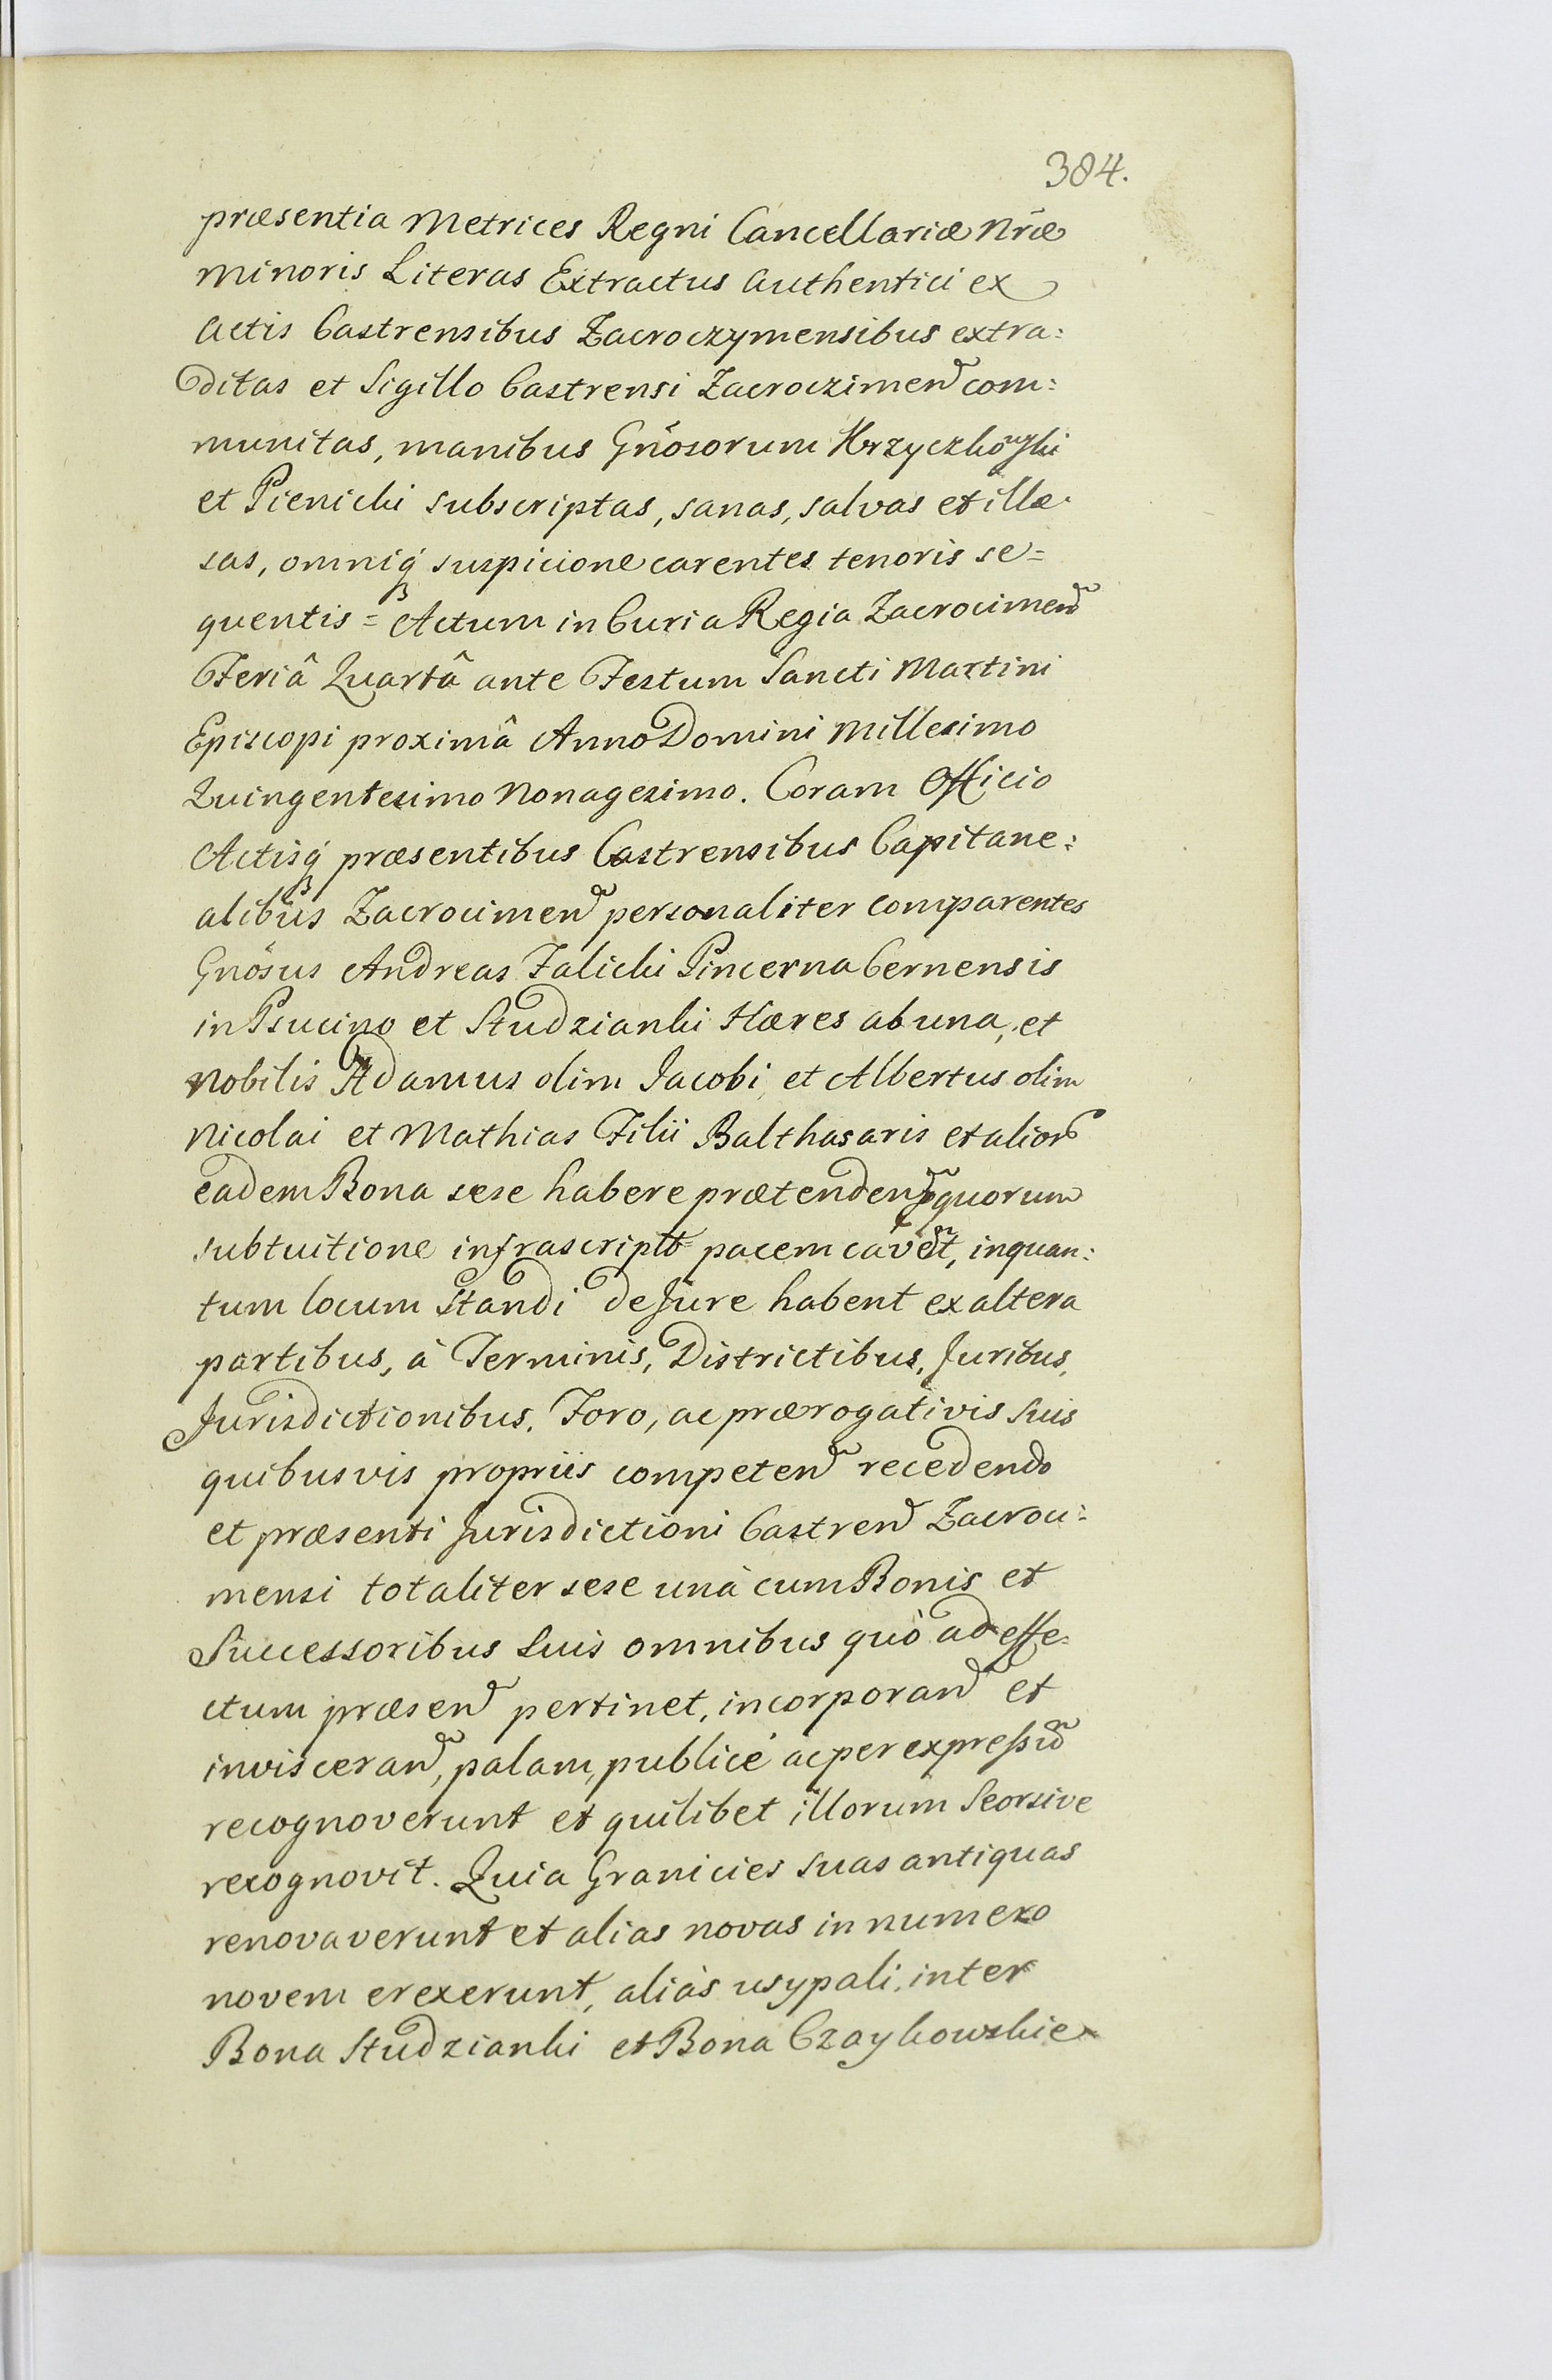 384.
præsentia Metrices Regni Cancellariæ Nr̃æ
Minoris Literas Extractus Authentici ex
Actis Castrensibus Zacroczymensibus extra:
ditas et Sigillo Castrensi Zacroczimen̄ com:
munitas, manibus Gn̄osorum Krzyczkowski
et Pienicki subscriptas, sanas, salvas et illæ
sas, omniq̨ suspicione carentes tenoris se=
quentis = Actum in Curia Regia Zacrocimen̄
Feriâ Quartâ ante Festum Sancti Martini
Episcopi proximâ Anno Domini Millesimo
Quingentesimo Nonagesimo. Coram Officio
Actisq̨ præsentibus Castrensibus Capitane:
alibus Zacrocimen̄ personaliter comparentes
Gn̄osus Andreas Zalicki Pincerna Cernensis
in Psucino et Studzianki Hæres ab una, et
Nobilis Adamus olim Jacobi, et Albertus olim
Nicolai et Mathias Filii Balthasaris et alior̃
eadem Bona sese habere prætenden̄ quorum
subtuitione infrascript̃ pacem caven̄t, inquan:
tum locum standi de Jure habent ex altera
partibus, à Terminis, Districtibus, Juribus,
Jurisdictionibus, Foro, ac prærogativis suis
quibusvis propriis competen̄ recedendo
et præsenti Jurisdictioni Castren̄ Zacroci:
mensi totaliter sese unà cum Bonis et
Successoribus suis omnibus quò ad effe=
ctum præsen̄ pertinet, incorporan̄ et
invisceran̄, palam, publicè ac per expressū
recognoverunt et quilibet illorum Seorsive
recognovit. Quia Granicies suas antiquas
renovaverunt et alias novas in numero
novem erexerunt, aliàs usypali, inter
Bona Studzianki et Bona Czaykowskie